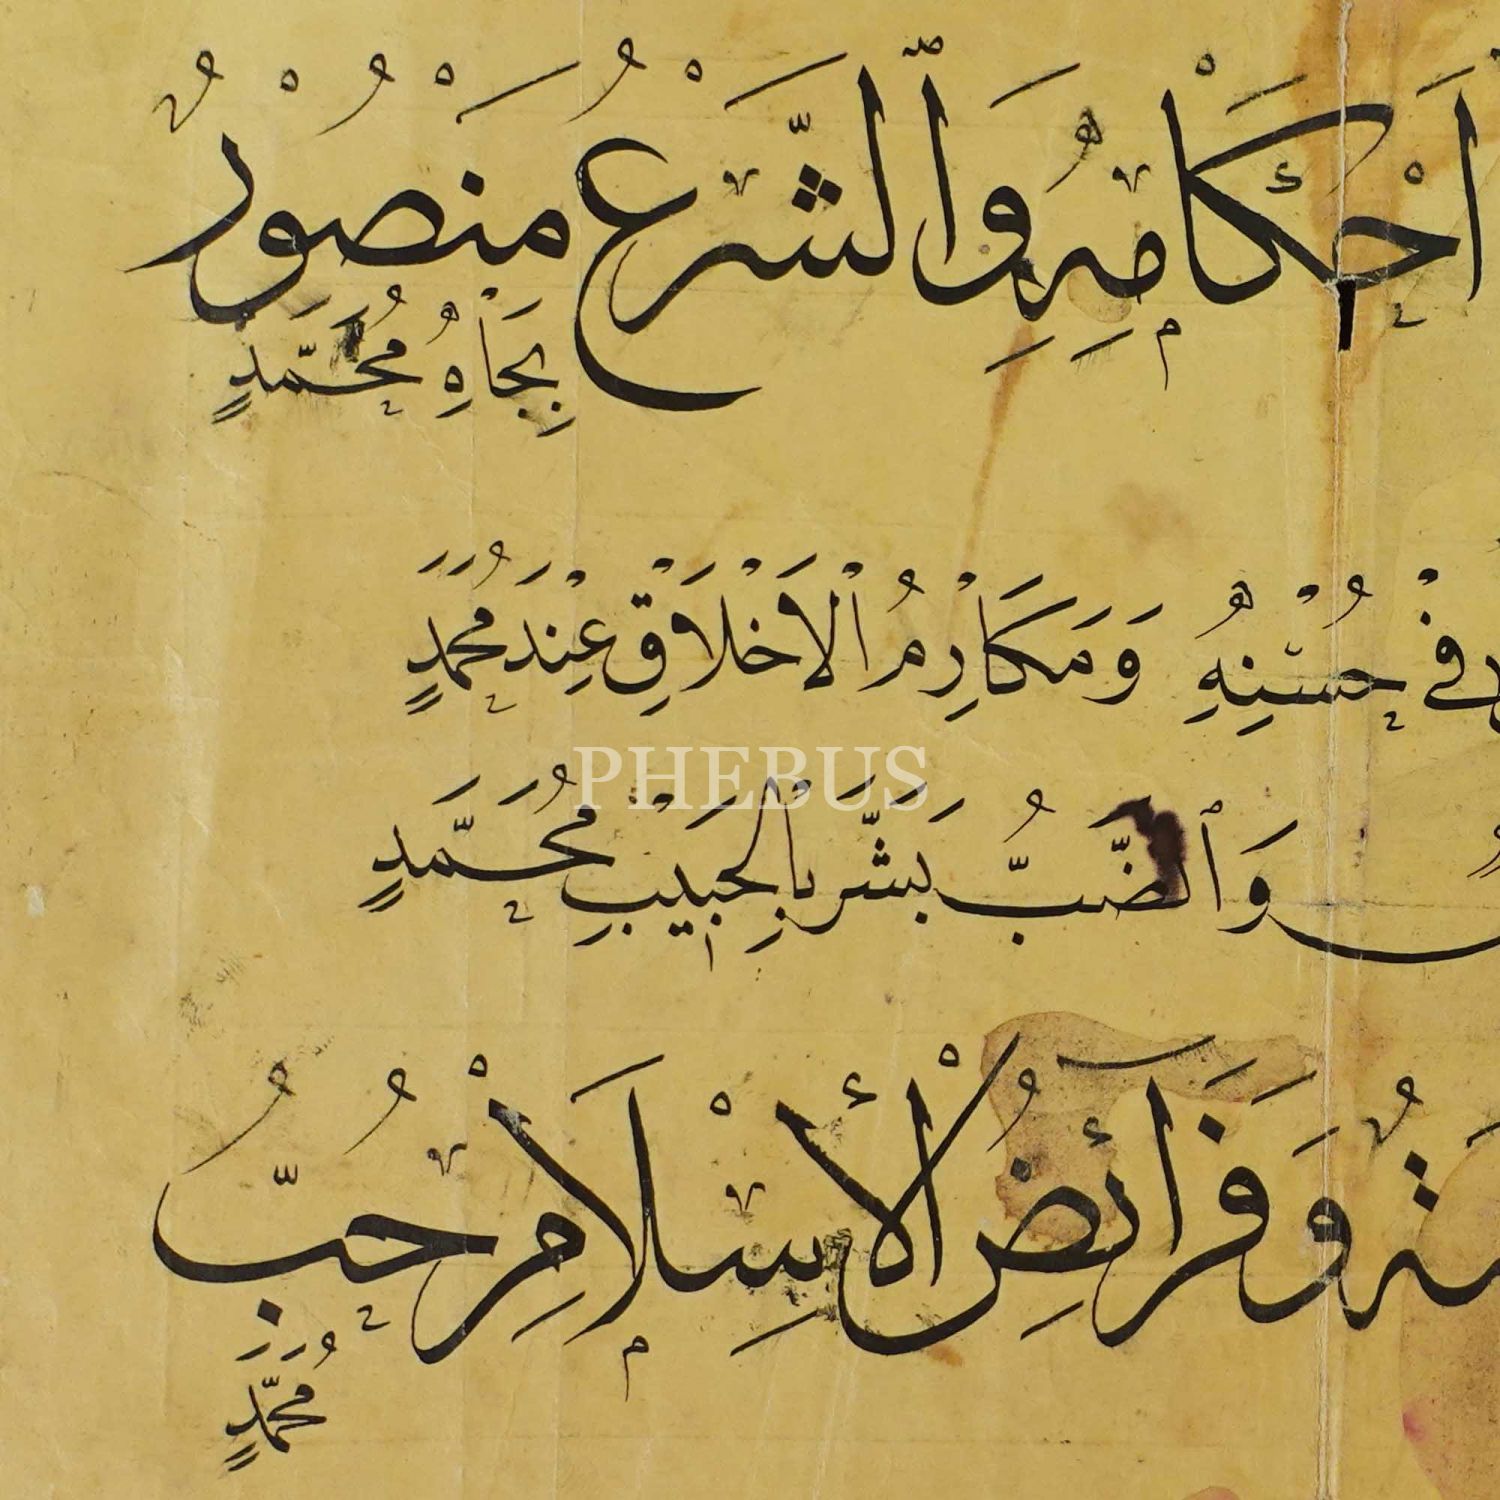 اَحْكَامِهِ وَالشَّرْعُ مَنْصُوْرٌ
بِجَاهِ مُحَمَّدٍ
فِيْ حُسْنِهِ وَمَكَارِمُ الْاَخْلَاقِ عِنْدَ مُحَمَّدٍ
وَالضَّبُّ بَشَّرَ بِالْحَبِيْبِ مُحَمَّدٍ
PHEBUS
وَفَرَائِضُ الْأِسْلَامِ حُبُّ
مُحَمَّدٍ